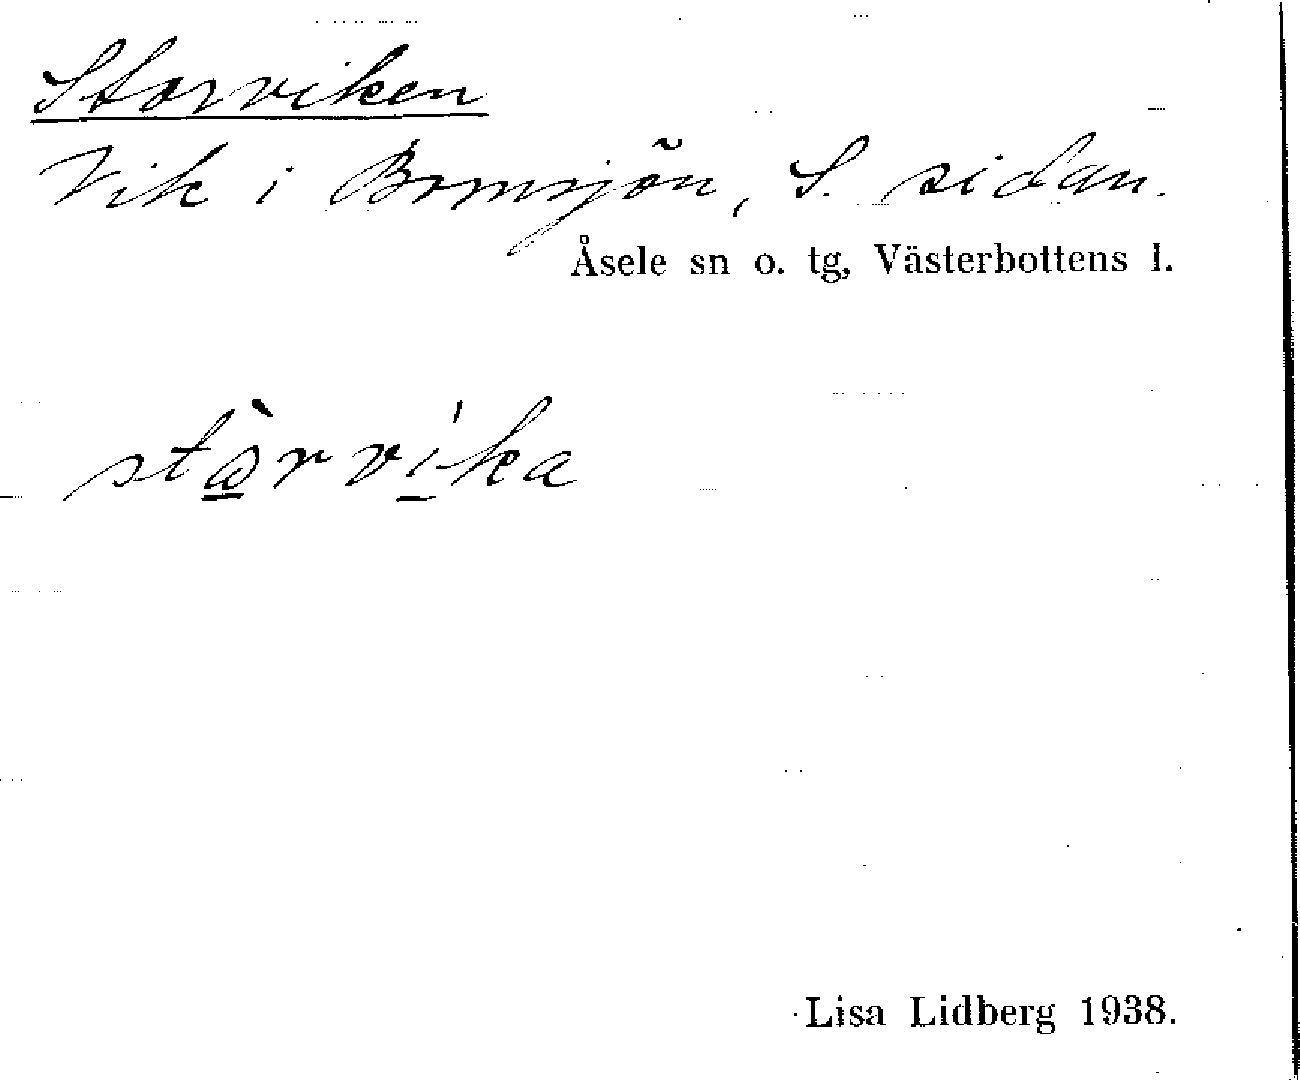 Storviken
Vik i Bomsjön, S. sidan.
Åsele sn o. tg, Västerbottens l.
stårvika
Lisa Lidberg 1938.